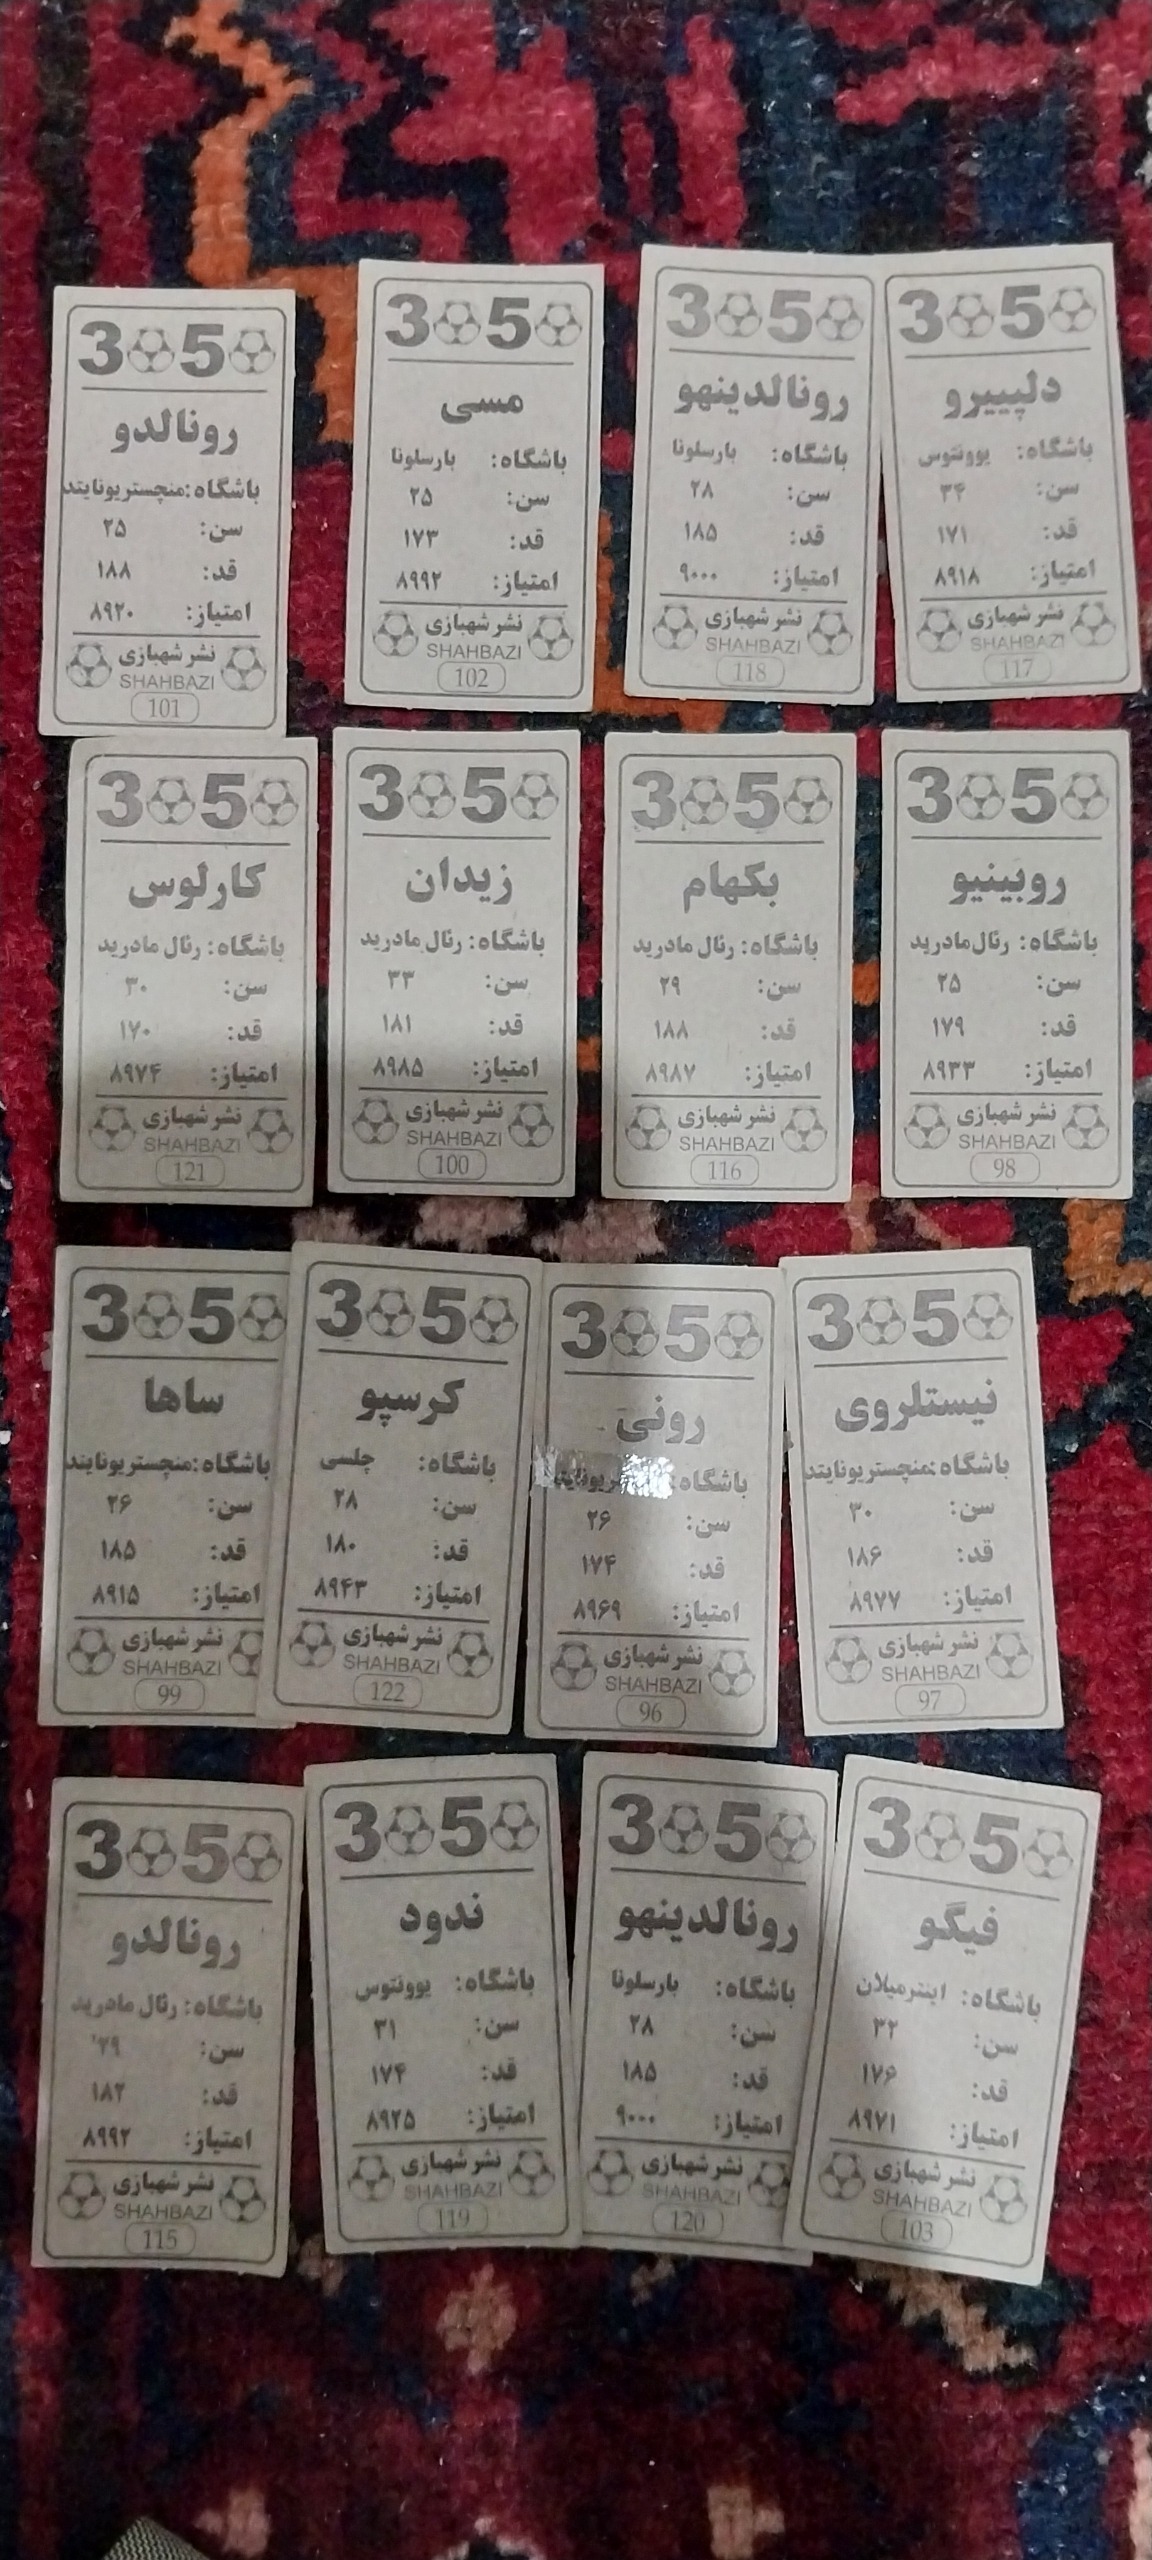 35
رونالدو
باشگاه: منچستریونایتد
سن: ۲۵
قد: ۱۸۸
امتیاز: ۸۹۲۰
نشر شهبازی
SHAHBAZI
101
35
مسی
باشگاه: بارسلونا
سن: ۲۵
قد: ۱۷۳
امتیاز: ۸۹۹۲
نشر شهبازی
SHAHBAZI
102
35
رونالدینهو
باشگاه: بارسلونا
سن: ۲۸
قد: ۱۸۵
امتیاز: ۹۰۰۰
نشر شهبازی
SHAHBAZI
118
35
دلپییرو
باشگاه: یوونتوس
سن: ۳۴
قد: ۱۷۱
امتیاز: ۸۹۱۸
نشر شهبازی
SHAHBAZI
117
35
کارلوس
باشگاه: رئال مادرید
سن: ۳۰
قد: ۱۷۰
امتیاز: ۸۹۷۴
نشر شهبازی
SHAHBAZI
121
35
زیدان
باشگاه: رئال مادرید
سن: ۳۳
قد: ۱۸۱
امتیاز: ۸۹۸۵
نشر شهبازی
SHAHBAZI
100
35
بکهام
باشگاه: رئال مادرید
سن: ۲۹
قد: ۱۸۸
امتیاز: ۸۹۸۷
نشر شهبازی
SHAHBAZI
116
35
روبینیو
باشگاه: رئال مادرید
سن: ۲۵
قد: ۱۷۹
امتیاز: ۸۹۳۳
نشر شهبازی
SHAHBAZI
98
35
ساها
باشگاه: منچستریونایتد
سن: ۲۶
قد: ۱۸۵
امتیاز: ۸۹۱۵
نشر شهبازی
SHAHBAZI
99
35
کرسپو
باشگاه: چلسی
سن: ۲۸
قد: ۱۸۰
امتیاز: ۸۹۴۳
نشر شهبازی
SHAHBAZI
122
35
رونی
باشگاه:
سن: ۲۶
قد: ۱۷۴
امتیاز: ۸۹۶۹
نشر شهبازی
SHAHBAZI
96
35
نیستلروی
باشگاه: منچستریونایتد
سن: ۳۰
قد: ۱۸۶
امتیاز: ۸۹۷۷
نشر شهبازی
SHAHBAZI
97
35
رونالدو
باشگاه: رئال مادرید
سن: ۲۹
قد: ۱۸۲
امتیاز: ۸۹۹۲
نشر شهبازی
SHAHBAZI
115
35
ندود
باشگاه: یوونتوس
سن: ۳۱
قد: ۱۷۴
امتیاز: ۸۹۲۵
نشر شهبازی
SHAHBAZI
119
35
رونالدینهو
باشگاه: بارسلونا
سن: ۲۸
قد: ۱۸۵
امتیاز: ۹۰۰۰
نشر شهبازی
SHAHBAZI
120
35
فیگو
باشگاه: اینترمیلان
سن: ۳۲
قد: ۱۷۶
امتیاز: ۸۹۷۱
نشر شهبازی
SHAHBAZI
103